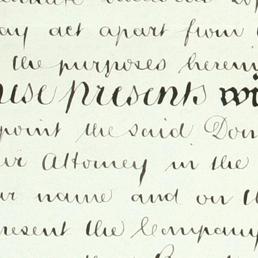 ay act apart from
the purposes herein
ese presents wi
point the said Don
ur Attorney in the
ur name and on th
resent the Company